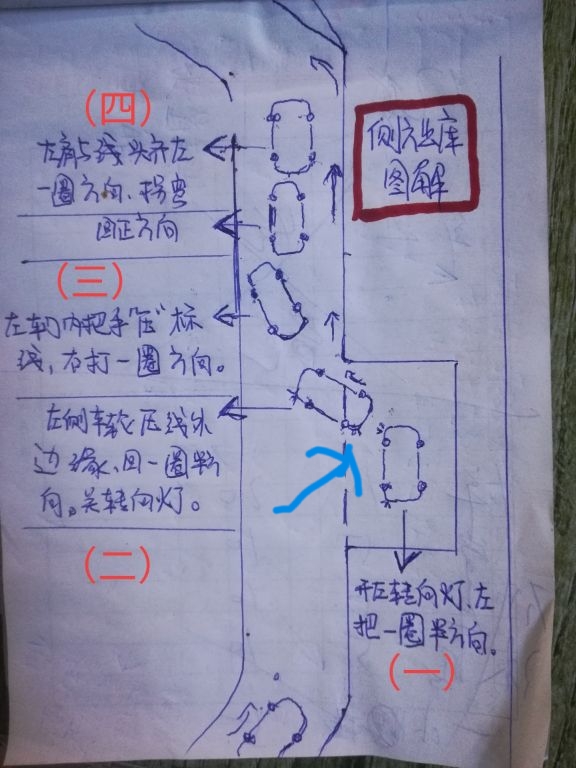 (四)
左肩与线头齐左
一圈方向、拐弯
回正方向
(三)
左车门内把手"压"标
线,右打一圈方向。
左侧车轮压线外
边缘、回一圈半方
向。关转向灯。
(二)
侧方出库
图解
开左转向灯、左
把一圈半方向。
(一)